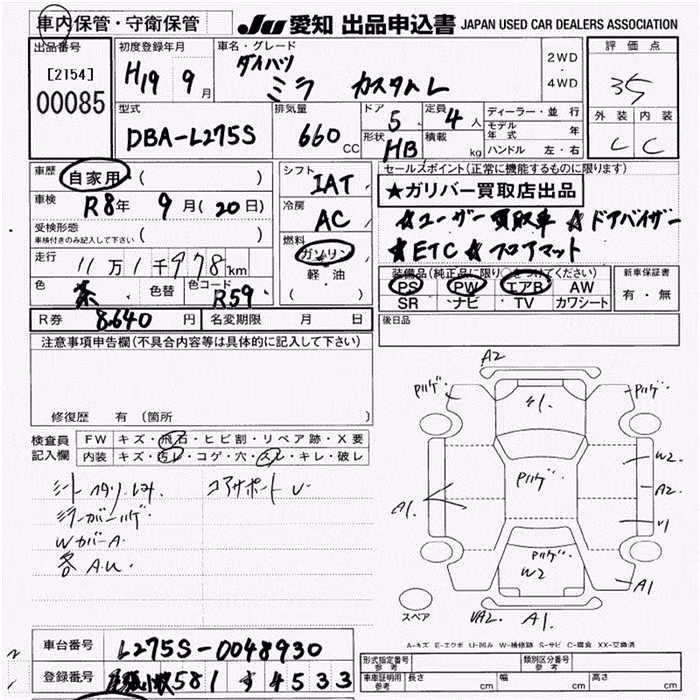 車内保管・守衛保管 JU 愛知 出品申込書 JAPAN USED CAR DEALERS ASSOCIATION
出品番号 初度登録年月 車名・グレード 評価点
[2154] H19 9月 ダイハツ 2WD
00085 ミラ カスタムL ・4WD 35
型式 排気量 ドア 5 定員 4人 ディーラー・並行 外装 内装
DBA-L275S 660CC 形状 HB 積載 kg モデル年式 年 C C
ハンドル 左・右
車歴 自家用 ( ) シフト IAT セールスポイント(正常に機能するものに限ります)
車検 R8年 9月(20日) 冷房 AC ★ガリバー買取店出品
受検形態 ( ) ☆ユーザー買取車 ☆ドアバイザー
車検付きのみ記入して下さい 燃料 ★ETC ☆フロアマット
走行 11万1千978km ガソリン 装備品(純正品に限り○をつけてください) 新車保証書
色 茶 色替 色コード R59 軽・油 PS PW エアB AW 有・無
( ) SR ナビ TV カワシート
R券 8,640円 名変期限 月 日 後日品
注意事項申告欄(不具合内容等は具体的に記入して下さい)
修復歴 有 (箇所
検査員 FW キズ・飛石・ヒビ割・リペア跡・X要
記入欄 内装 キズ・汚レ・コゲ・穴・スレ・キレ・破レ
シートヘタリ コアサポート U
ミラーカバーハゲ
WカバーA
各 A.U
A2
ハゲ ハゲ
A1
Pハゲ W2
A1 A2
Pハゲ
W2 A1
スペア A1
A-キズ E-エクボ U-凹み W-補修跡 S-サビ C-腐食 XX-交換済
車台番号 L275S-0048930 形式指定番号 参考 類別区分番号 参考
登録番号 尾張小牧 581 す 4533 車庫証明用 参考 長さ cm 幅 cm 高さ cm